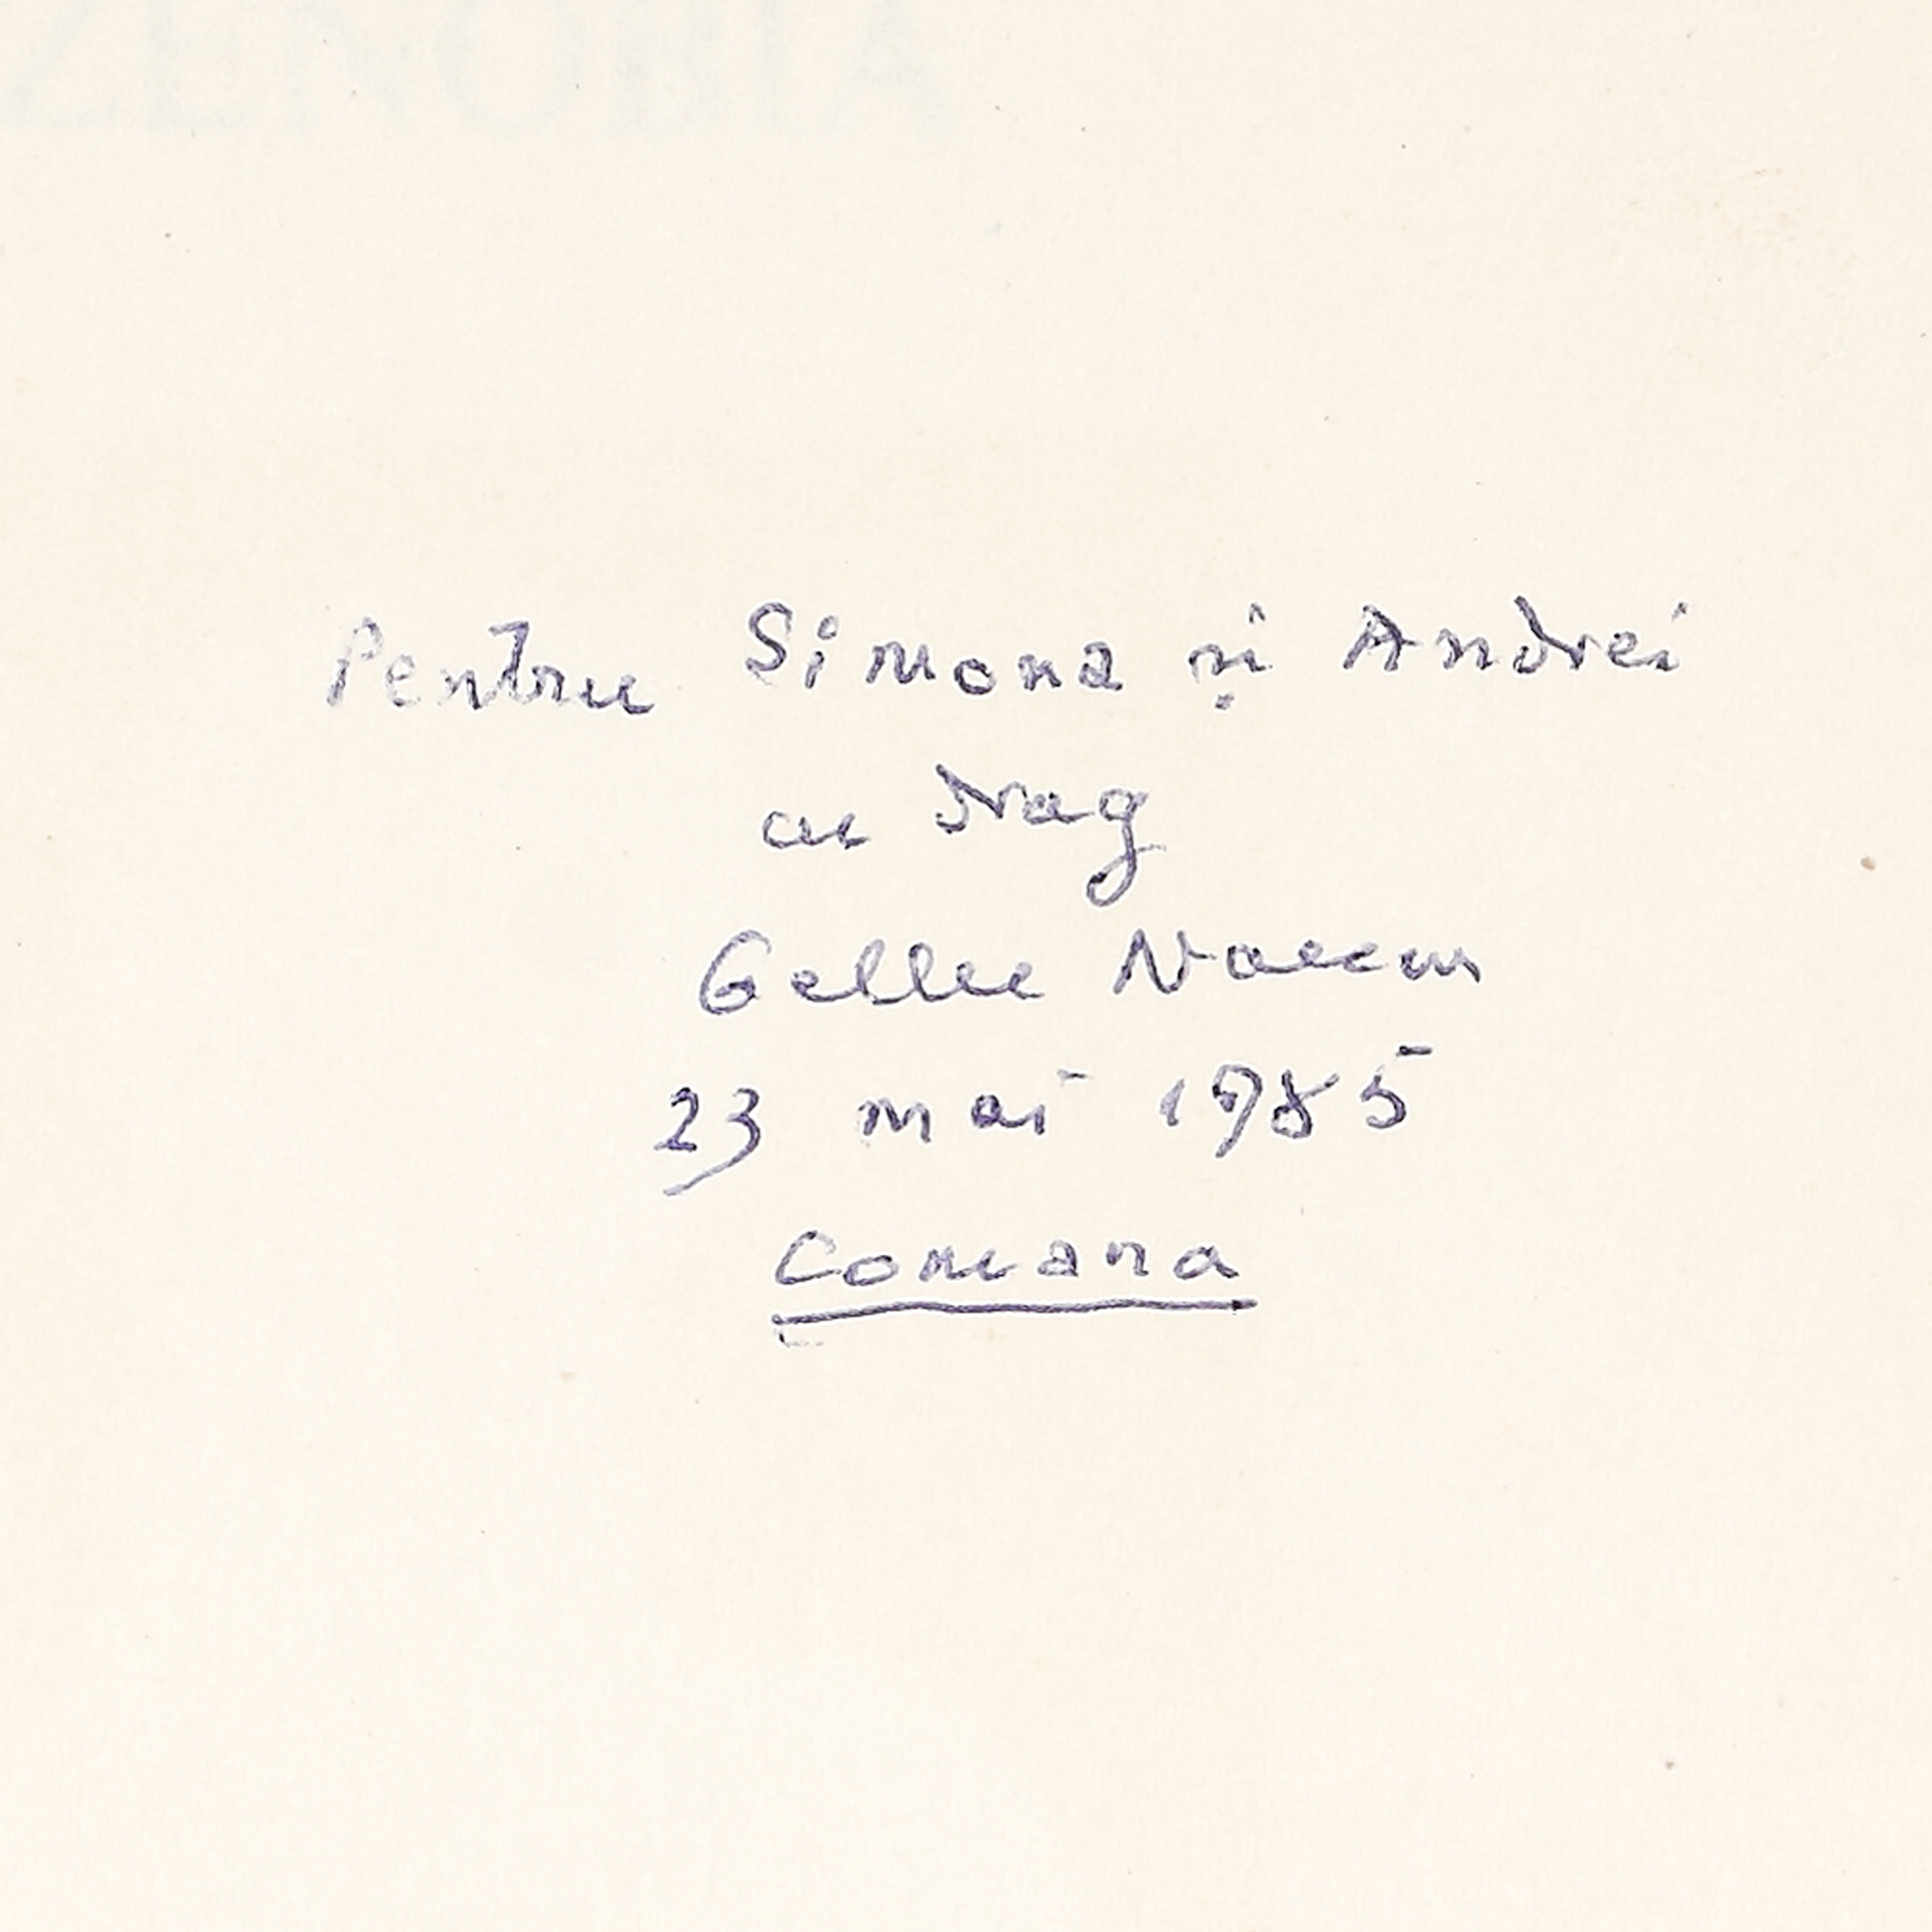 ZENOBIA
Pentru Simona și Andrei
cu drag
Gellu Naum
23 mai 1985
Comana